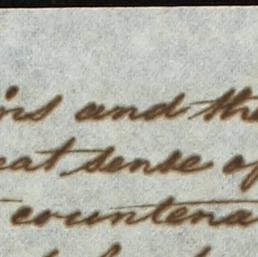 and the
eat sense of
countena